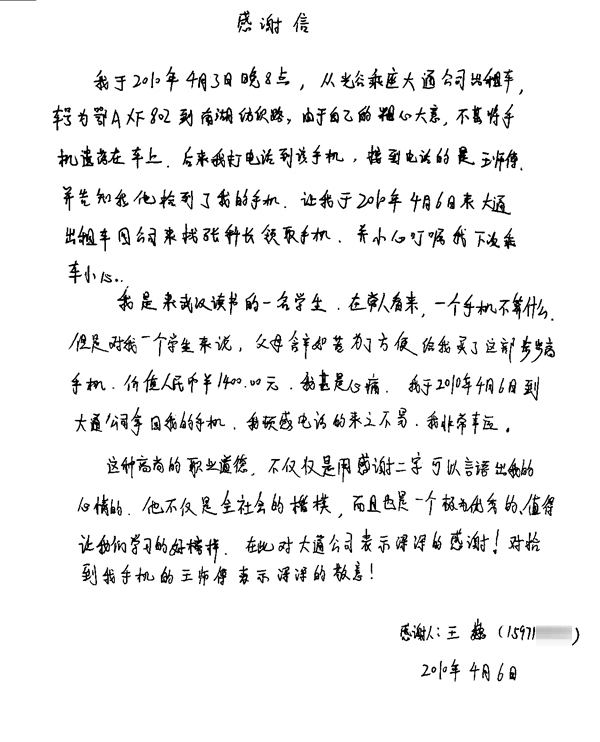 感谢信
我于2010年4月3日晚8点，从光谷乘座大通公司出租车，
车号为鄂AXF802到南湖纺织路，由于自己的粗心大意，不甚将手
机遗落在车上．后来我打电话到该手机，接到电话的是王师傅．
并告知我他捡到了我的手机．让我于2010年4月6日来大通
出租车公司来找张科长领取手机．并小心叮嘱我下次乘
车小心．．
我是来武汉读书的一名学生．在常人看来，一个手机不算什么．
但是对我一个学生来说，父母含辛如苦为了方便给我买了这部步步高
手机．价值人民币￥1400.00元．我甚是心痛．我于2010年4月6日到
大通公司拿回我的手机．我顿感电话的来之不易．我非常幸运。
这种高尚的职业道德，不仅仅是用感谢二字可以言语出我的
心情的．他不仅是全社会的楷模，而且也是一个极为优秀的、值得
让我们学习的好榜样．在此对大通公司表示深深的感谢！对拾
到我手机的王师傅表示深深的敬意！
感谢人：王 (15971
2010年4月6日